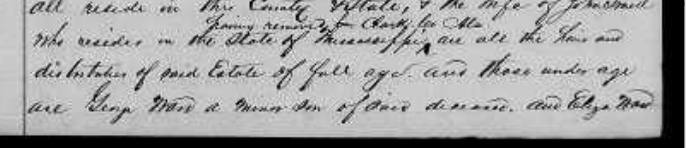 all reside in this County & State, & the wife of John
having removed to Clark Co Ala
who resides in the State of Mississippi, are all the heirs and
distributees of said Estate of full age. and those under age
are George Ward a minor son of said deceased. and Eliza Ward